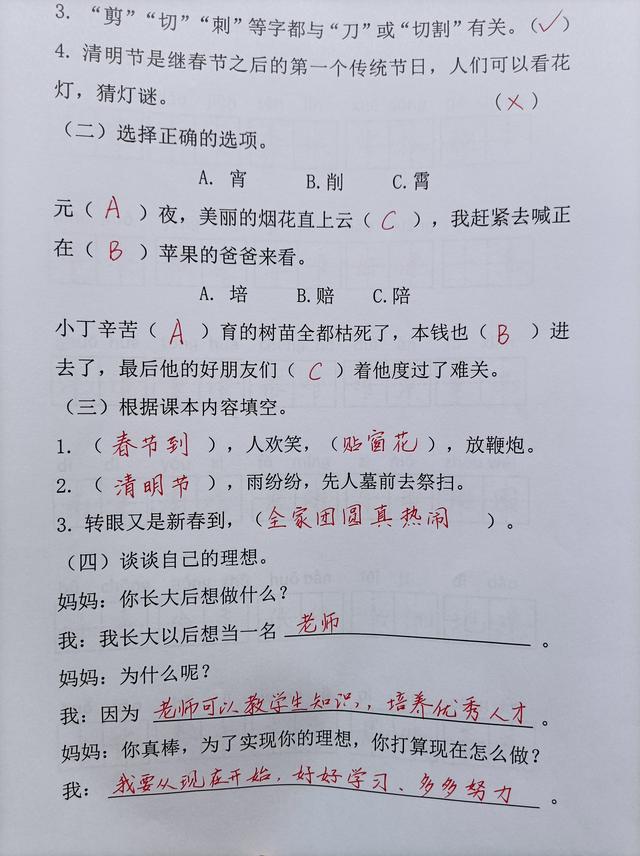 3. “剪”“切”“刺”等字都与“刀”或“切割”有关。(✓)
4. 清明节是继春节之后的第一个传统节日，人们可以看花
灯，猜灯谜。 (×)
（二）选择正确的选项。
A. 宵 B.削 C.霄
元（ A ）夜，美丽的烟花直上云（ C ），我赶紧去喊正
在（ B ）苹果的爸爸来看。
A. 培 B.赔 C.陪
小丁辛苦（ A ）育的树苗全都枯死了，本钱也（ B ）进
去了，最后他的好朋友们（ C ）着他度过了难关。
（三）根据课本内容填空。
1. （ 春节到 ），人欢笑，（贴窗花），放鞭炮。
2. （ 清明节 ），雨纷纷，先人墓前去祭扫。
3. 转眼又是新春到，（全家团圆真热闹 ）。
（四）谈谈自己的理想。
妈妈：你长大后想做什么？
我：我长大以后想当一名 老师 。
妈妈：为什么呢？
我：因为 老师可以教学生知识，，培养优秀人才 。
妈妈：你真棒，为了实现你的理想，你打算现在怎么做？
我： 我要从现在开始，好好学习、多多努力 。